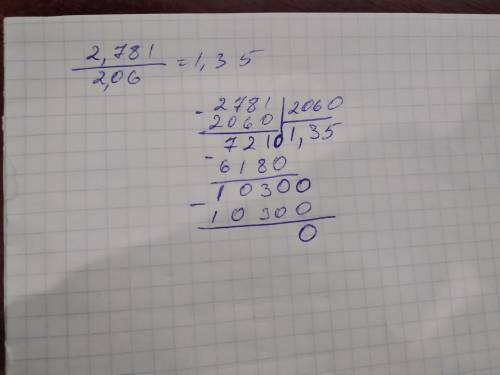 2,781
2,06 = 1,35
- 2781 | 2060
2060 | 1,35
7210
- 6180
10300
- 10300
0